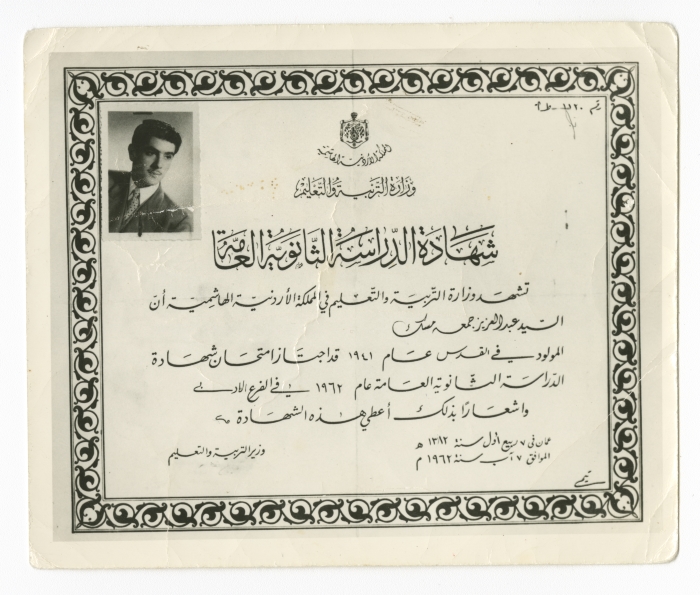 رقم
المملكة الأردنية الهاشمية
وزارة التربية والتعليم
شهادة الدراسة الثانوية العامة
تشهد وزارة التربية والتعليم في المملكة الأردنية الهاشمية أن
السيد عبد العزيز جمعه
المولود في القدس عام ١٩٤١ قد اجتاز امتحان شهادة
الدراسة الثانوية العامة عام ١٩٦٢ في الفرع الأدبي
واشعارًا بذلك أعطي هذه الشهادة
عمان في ٧ ربيع اول سنة ١٣٨٢ هـ
الموافق ٧ آب سنة ١٩٦٢ م
وزير التربية والتعليم